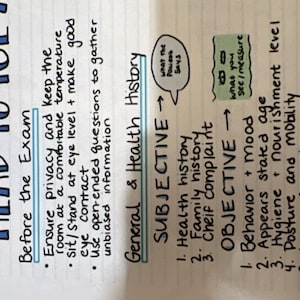 Before the Exam
• Ensure privacy and keep the
room at a comfortable temperature
• Sit/stand at eye level + make good
eye contact
• Use open-ended questions to gather
unbiased information
General & Health History
SUBJECTIVE →
what the
Patient
says
1. Health history
2. Family history
3. Chein complaint
OBJECTIVE →
what you
see/measure
1. Behavior + mood
2. Appears stated age
3. Hygiene + nourishment level
4. Posture and mobility